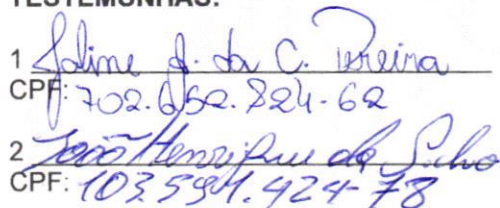 TESTEMUNHAS:
1 Joline J. da C. Pereira
CPF: 702.652.824-62
2 João Henrique da Silva
CPF: 103.591.424-78